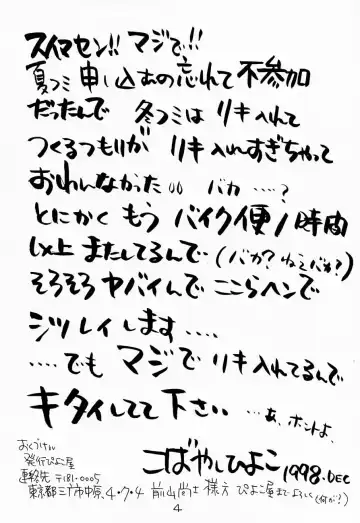 スイマセン!! マジで!!
夏コミ申し込むの忘れて不参加
だったんで 冬コミは リキ入れて
つくるつもりが リキ入れすぎちゃって
おわんなかった。。 バカ ‥‥?
とにかく もう バイク便1時間
以上 またしてるんで (バカ? ねぇバカ?)
そろそろ ヤバイんで ここらヘンで
シツレイします ‥‥‥
‥‥でも マジで リキ入れてるんで
キタイしてて 下さい ‥‥あ、ホントよ、
こばやしひよこ 1998.DEC
おくづけ
発行 ぴよこ屋
連絡先 〒181-0005
東京都三鷹市中原4-9-4 前山尚士 様方 ぴよこ屋まで よろしく (何が?)
4